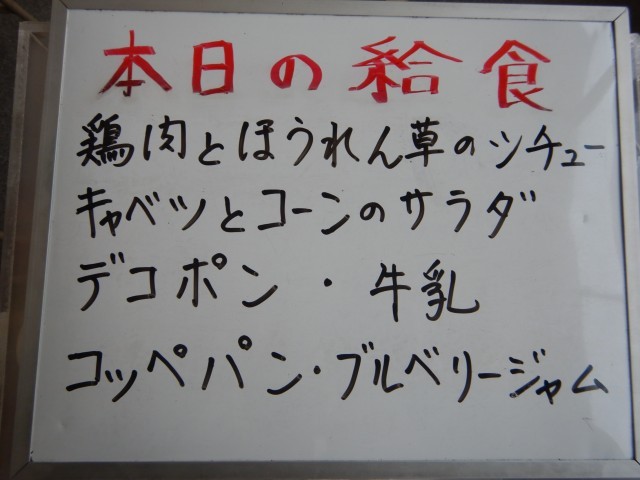 本日の給食
鶏肉とほうれん草のシチュー
キャベツとコーンのサラダ
デコポン・牛乳
コッペパン・ブルベリージャム